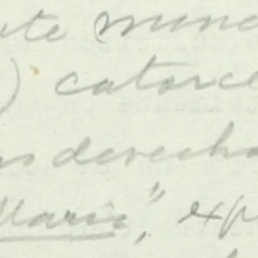 ute mine
) catorce
us derecho
Maria", exp